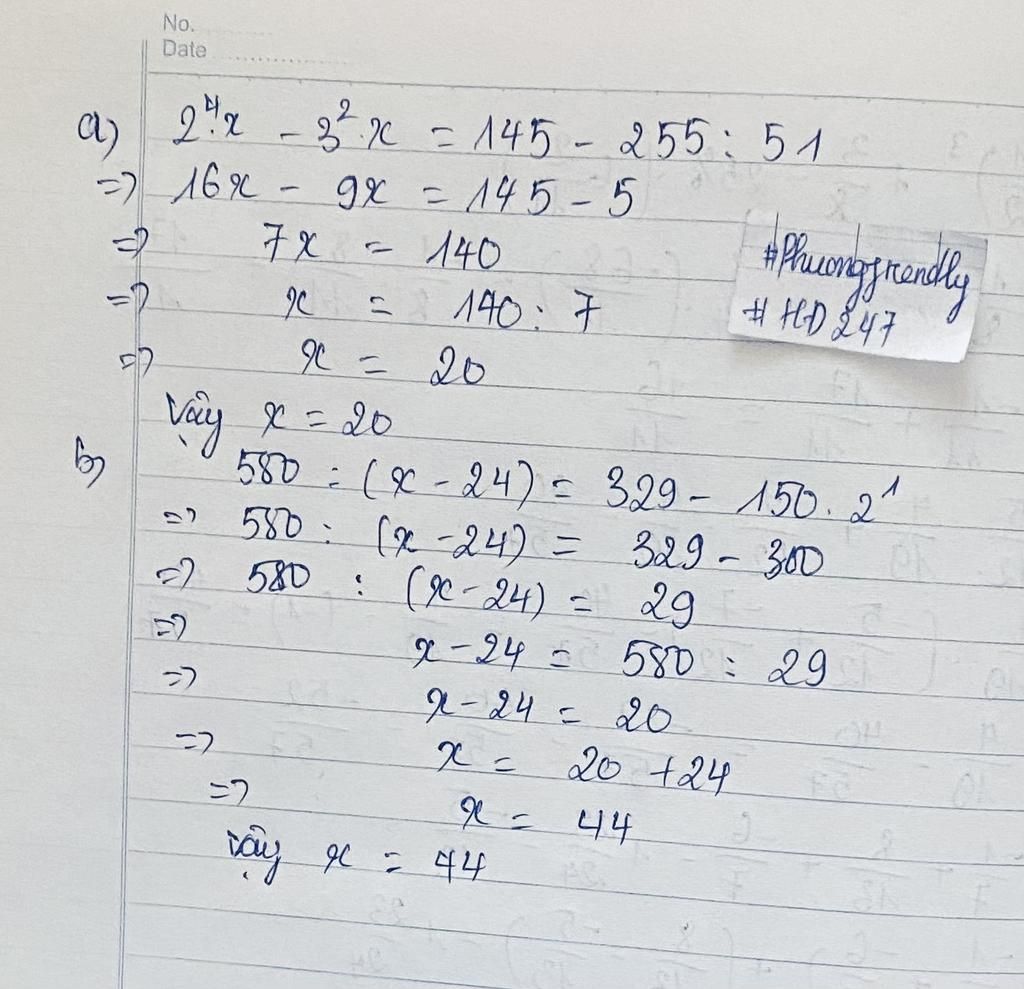 No.
Date
a) 2⁴.x - 3².x = 145 - 255 : 51
=> 16x - 9x = 145 - 5
=> 7x = 140
=> x = 140 : 7
=> x = 20
Vậy x = 20
#Phuongfrendly
#HD247
b) 580 : (x - 24) = 329 - 150. 2¹
=> 580 : (x - 24) = 329 - 300
=> 580 : (x - 24) = 29
=> x - 24 = 580 : 29
=> x - 24 = 20
=> x = 20 + 24
=> x = 44
Vậy x = 44